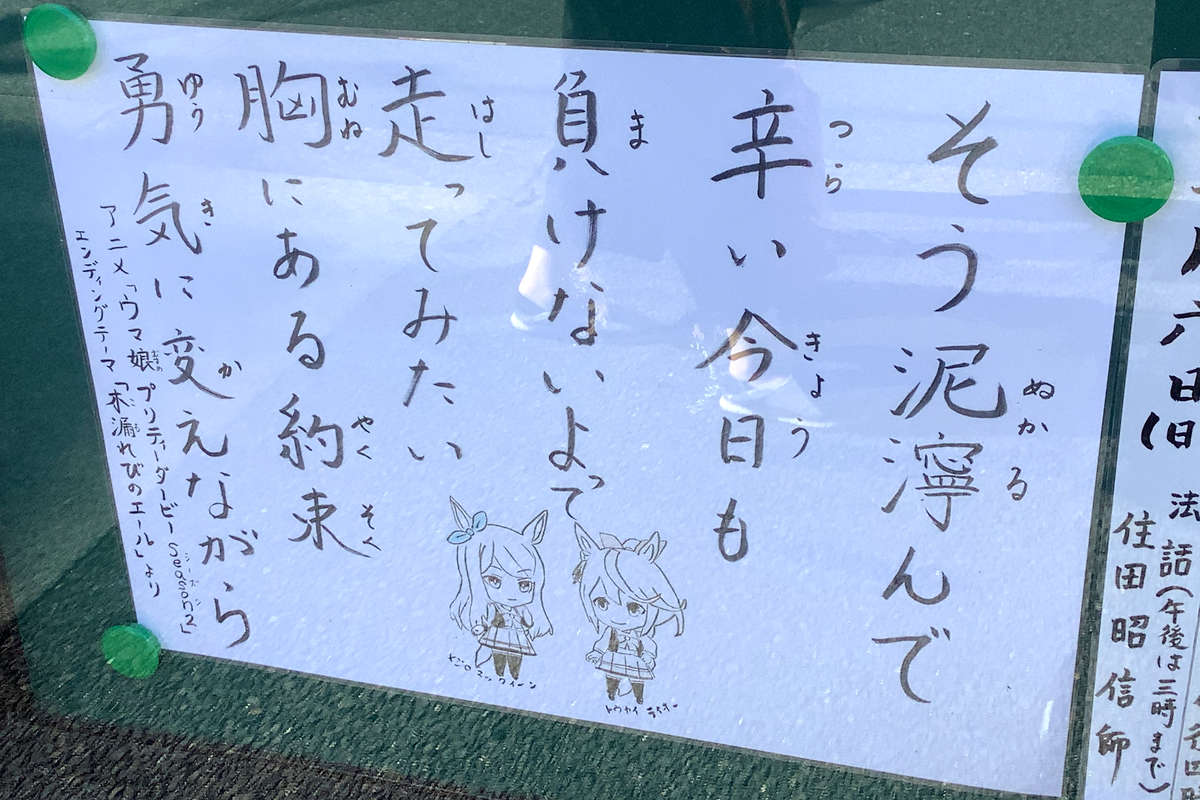 六日(日
法話(午後は三時まで)
住田昭信師
そう泥濘んで
ぬかる
辛い今日も
つら きょう
負けないよって
ま
走ってみたい
はし
胸にある約束
むね やくそく
勇気に変えながら
ゆう き か
アニメ「ウマ娘 プリティーダービー Season2」
むすめ シーズン
エンディングテーマ「木漏れびのエール」より
トウカイテイオー
メジロマックイーン